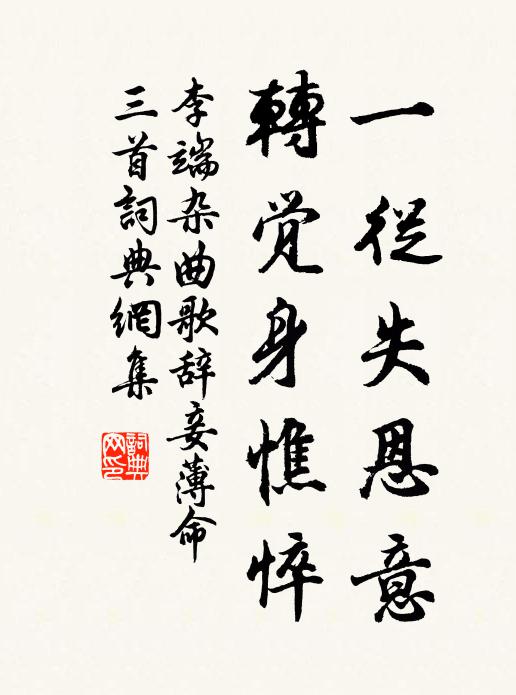 一從失恩意
轉覚身憔悴
李端杂曲歌辞妾薄命
三首詞典網集
詞典網印